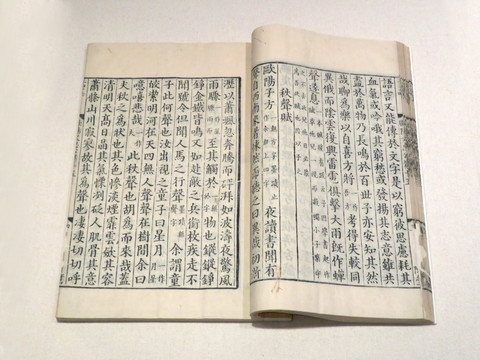 語言又能傳於文字是以窮彼思慮耗其
血氣或吟哦其窮愁或發揚其志意雖共
盡於萬物乃長鳴於百世子亦安知其然
哉聊為樂以自喜方將考得失較同
異俄而陰雲復興雷電俱擊大雨既作蟬
聲遂息
秋聲賦
歐陽子方夜讀書聞有
聲自西南來者悚然而聽之曰異哉初淅
瀝以蕭颯忽奔騰而砰湃如波濤夜驚風
雨驟至其觸於物也鏦鏦錚
錚金鐵皆鳴又如赴敵之兵銜枚疾走不
聞號令但聞人馬之行聲余謂童
子此何聲也汝出視之童子曰星月
皎潔明河在天四無人聲聲在樹間余曰
噫嘻悲哉此秋聲也胡為而來哉蓋
夫秋之為狀也其色慘淡煙霏雲斂其容
清明天高日晶其氣慄冽砭人肌骨其意
蕭條山川寂寥故其為聲也淒淒切切呼